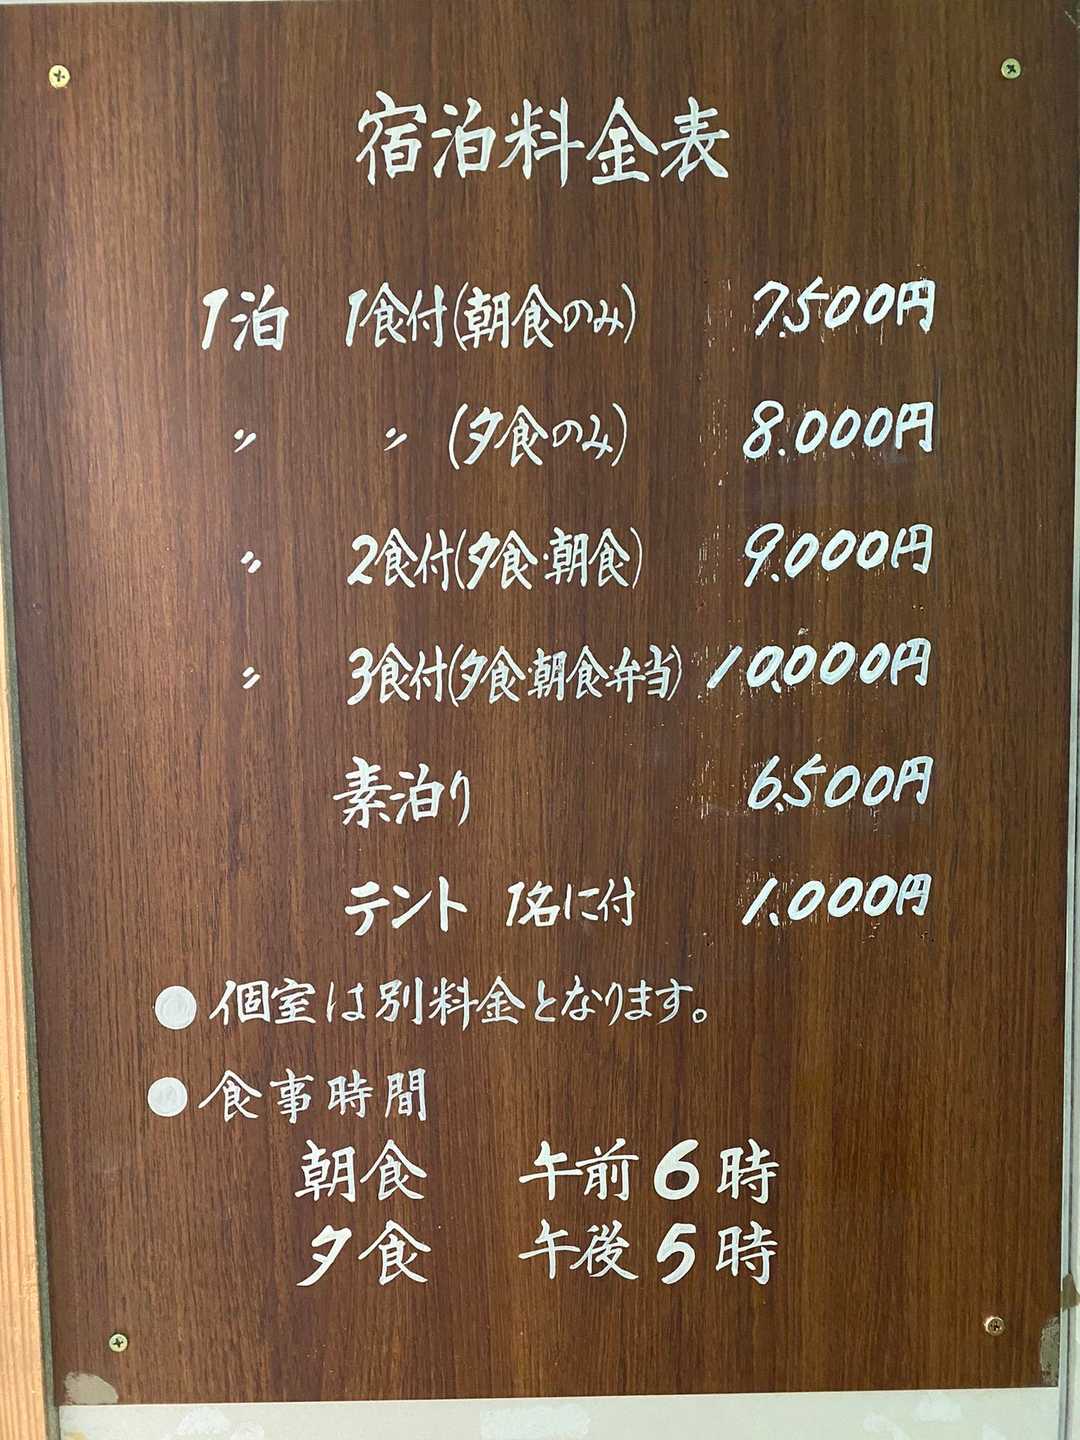 宿泊料金表
1泊 1食付(朝食のみ) 7.500円
〃 〃 (夕食のみ) 8.000円
〃 2食付(夕食・朝食) 9.000円
〃 3食付(夕食・朝食・弁当) 10.000円
素泊り 6.500円
テント 1名に付 1.000円
●個室は別料金となります。
●食事時間
朝食 午前6時
夕食 午後5時